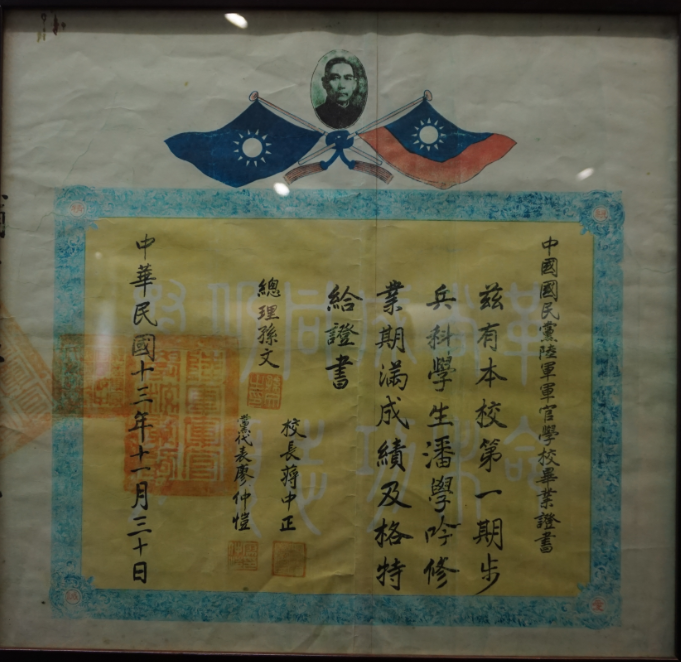 中國國民黨陸軍軍官學校畢業證書
茲有本校第一期步
兵科學生潘學吟修
業期滿成績及格特
給證書
總理孫文
校長蔣中正
黨代表廖仲愷
中華民國十三年十一月三十日